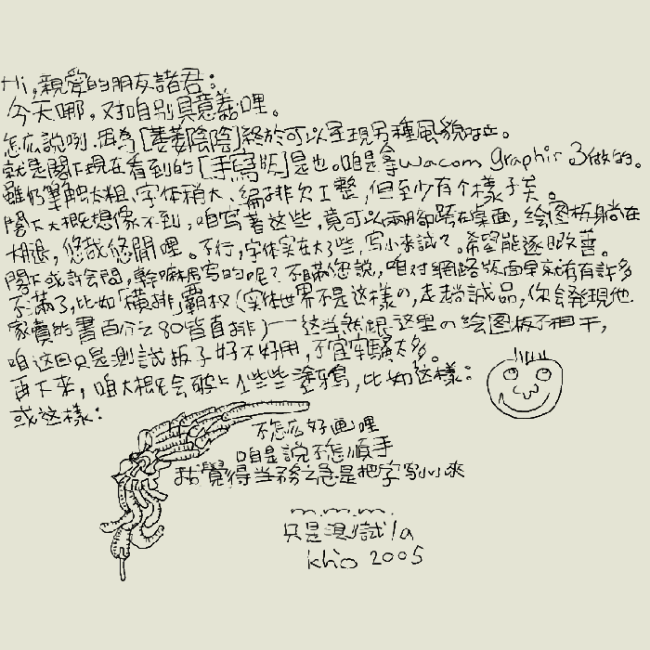 Hi,親愛的朋友諸君：
今天哪，对咱别具意義哩。
怎広說咧 再為[萋萋陰陰]終於可以呈現另種風貌 。
就是閣下現在看到的[手寫版]是也。咱是拿wacom graphic 3做的。
雖仍筆觸太粗、字体稍大、編排欠工整，但至少有个樣子矣。
閣下大概想像不到，咱写著这些，竟可以兩腳跨在桌面，绘图板躺在
大腿，悠哉悠閒哩。不行，字体实在大了些，写小來試？希望能逐 改善。
閣下或許会問，幹嘛用写的呢？不瞞您說，咱对網路版面早就有有許多
不滿了，比如「橫排」霸权（实体世界不是这樣の，走趟誠品，你会發現他
家賣的書百分之80皆直排）——这当然跟这里の绘图板不相干，
咱这回只是測試板子好不好用，不宜牢騷太多。
再下來，咱大概会 上些些塗鴉，比如这樣：
或这樣：
不怎広好画哩
咱是說不怎順手
我覺得当務之急是把字寫小來
m.m.m.
只是測試la
khio 2005